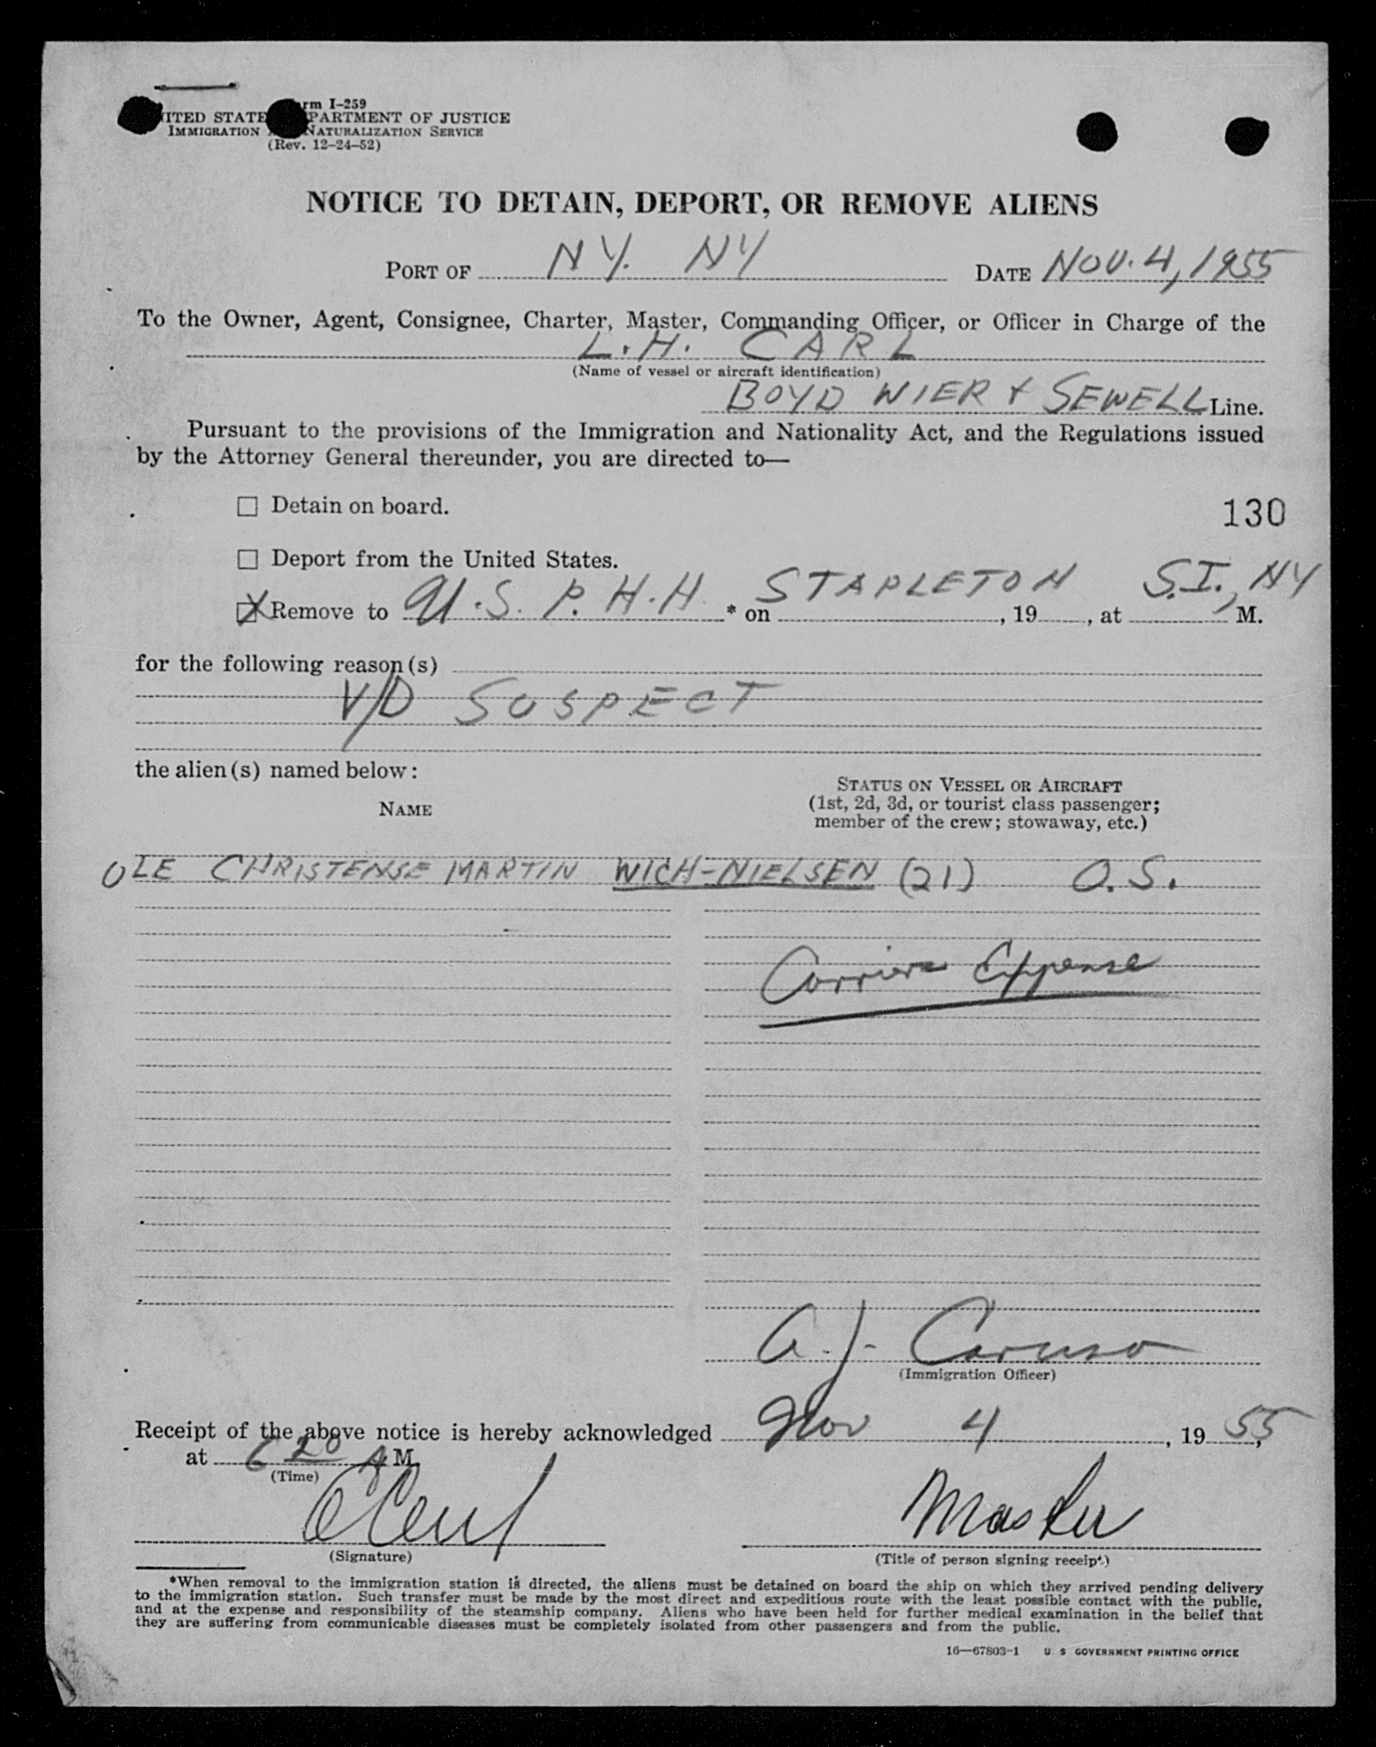 Form I-259
UNITED STATES DEPARTMENT OF JUSTICE
IMMIGRATION AND NATURALIZATION SERVICE
(Rev. 12-24-52)
NOTICE TO DETAIN, DEPORT, OR REMOVE ALIENS
PORT OF N.Y. NY DATE NOV. 4, 1955
To the Owner, Agent, Consignee, Charter, Master, Commanding Officer, or Officer in Charge of the
L.H. CARL
(Name of vessel or aircraft identification)
BOYD WIER & SEWELL Line.
Pursuant to the provisions of the Immigration and Nationality Act, and the Regulations issued
by the Attorney General thereunder, you are directed to—
☐ Detain on board.
130
☐ Deport from the United States.
☒ Remove to U.S. P.H.H. * on STAPLETON, 19 , at S.I., NY M.
for the following reason(s)
V/D SUSPECT
the alien(s) named below:
NAME
STATUS ON VESSEL OR AIRCRAFT
(1st, 2d, 3d, or tourist class passenger;
member of the crew; stowaway, etc.)
OLE CHRISTENSE MARTIN WICH-NIELSEN (21) O.S.
Carriers Expense
A. J. Caruso
(Immigration Officer)
Receipt of the above notice is hereby acknowledged Nov 4, 1955,
at 6 20 A M.
(Time)
Master
(Signature)
(Title of person signing receipt.)
*When removal to the immigration station is directed, the aliens must be detained on board the ship on which they arrived pending delivery
to the immigration station. Such transfer must be made by the most direct and expeditious route with the least possible contact with the public,
and at the expense and responsibility of the steamship company. Aliens who have been held for further medical examination in the belief that
they are suffering from communicable diseases must be completely isolated from other passengers and from the public.
16—67803-1 U. S GOVERNMENT PRINTING OFFICE